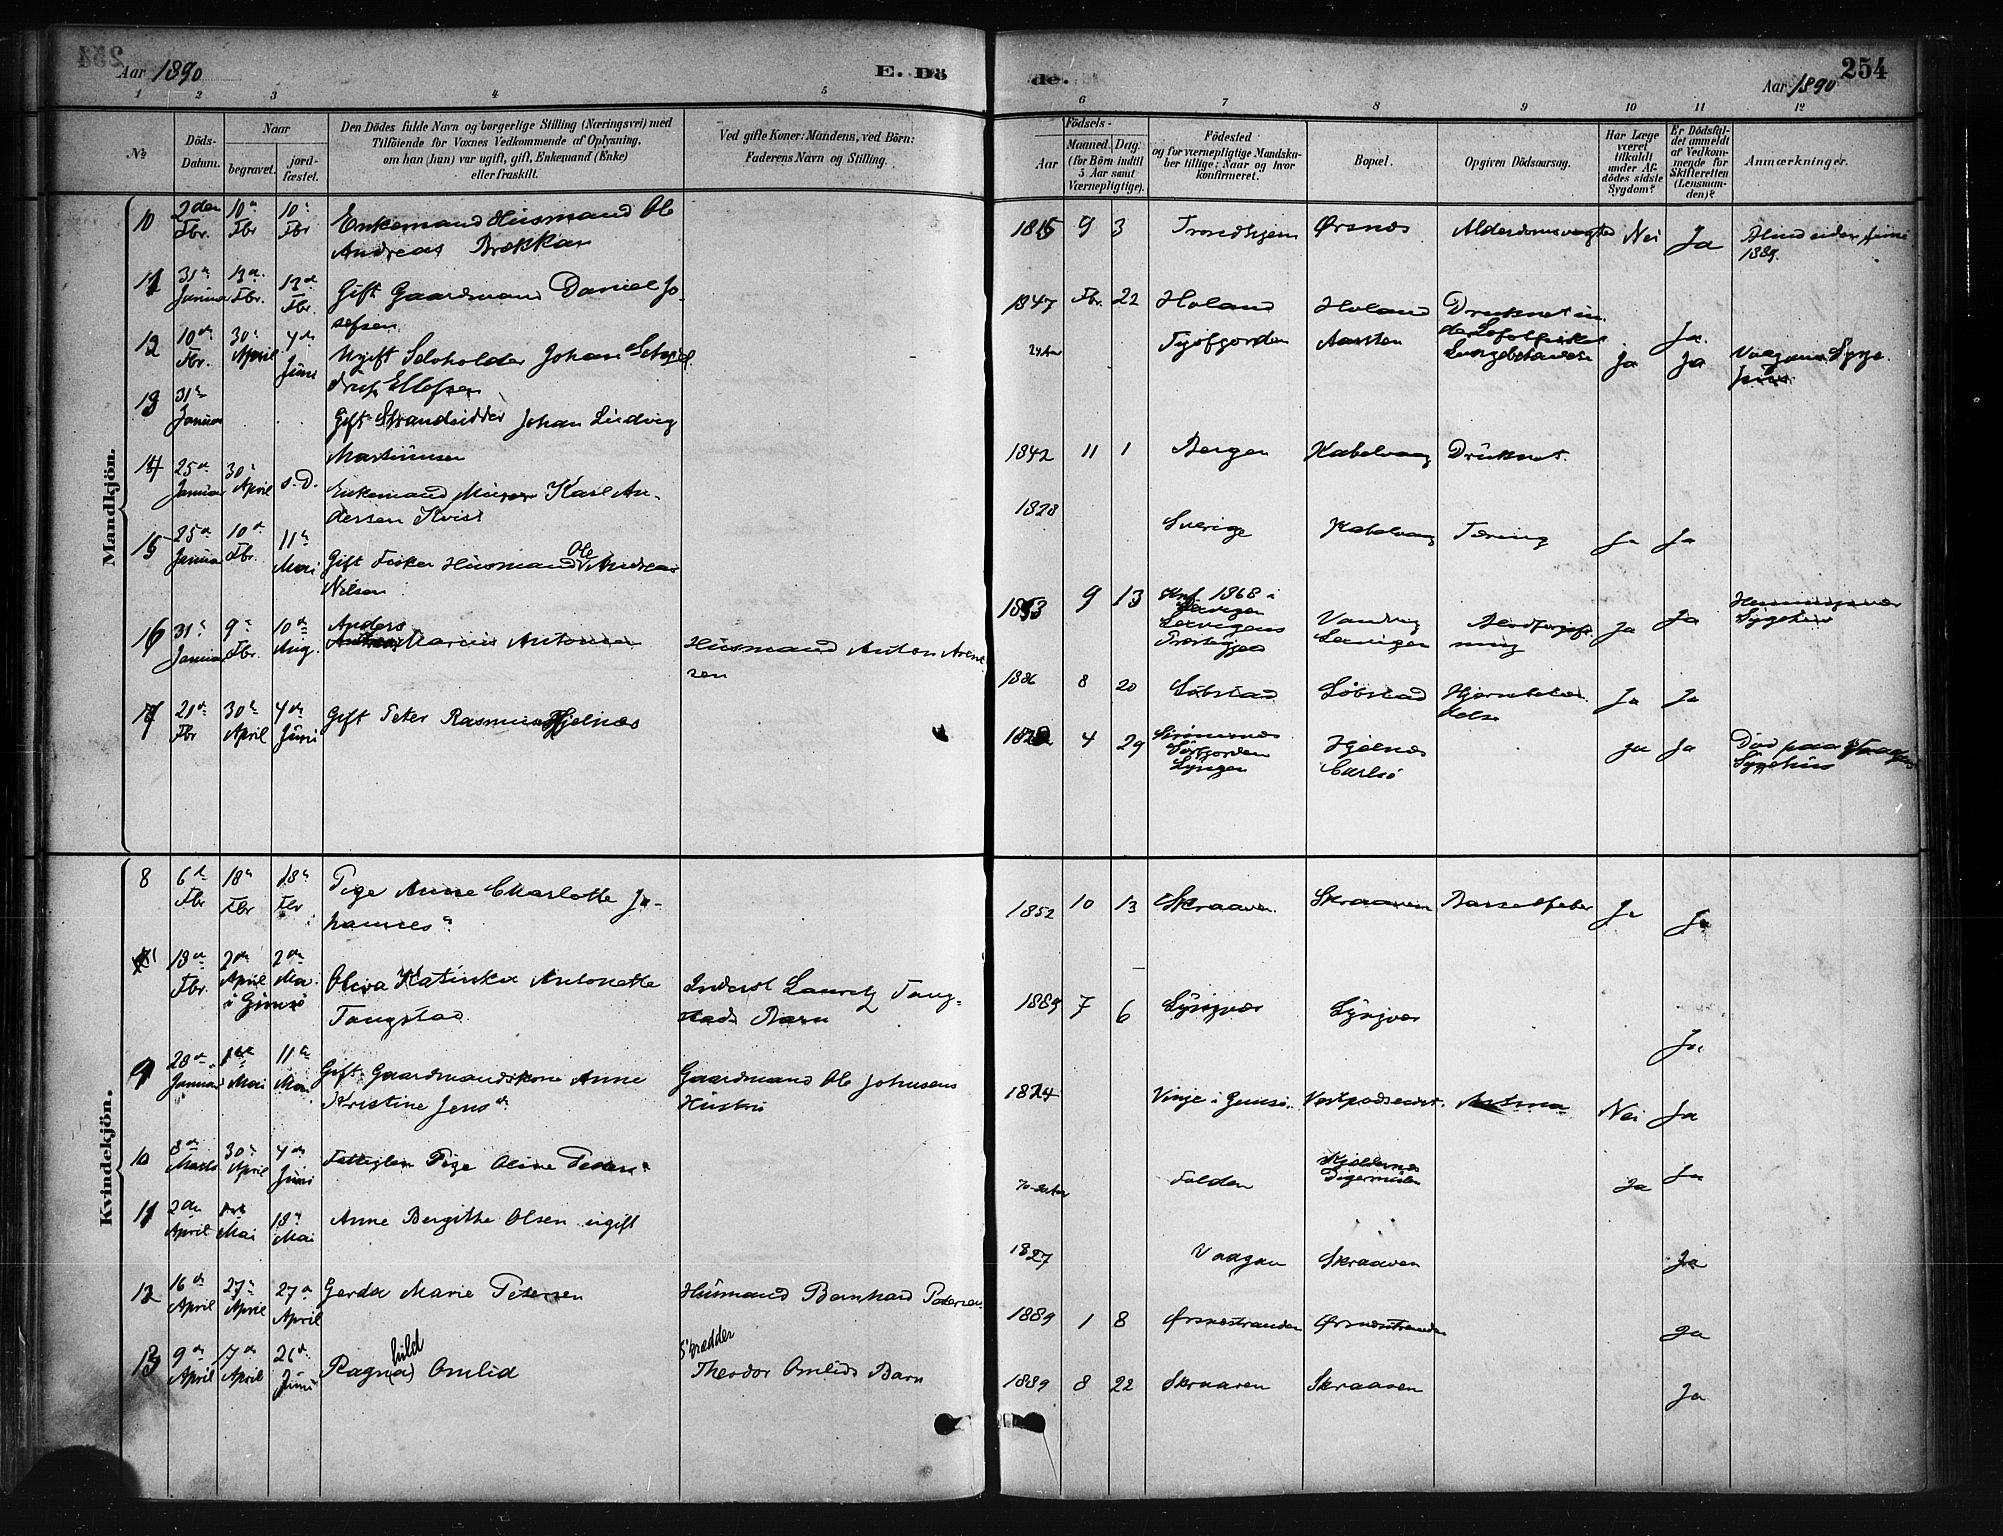 Aar 1890
E. Dö
de.
Aar 1890
254
1 2 3 4 5 6 7 8 9 10 11 12
No.
Döds-
Datum.
Naar
begravet.
jord-
fæstet.
Den Dödes fulde Navn og borgerlige Stilling (Næringsvei) med
Tilföiende for Voxnes Vedkommende af Oplysning,
om han (hun) var ugift, gift, Enkemand (Enke)
eller fraskilt.
Ved gifte Koner: Mandens, ved Börn:
Faderens Navn og Stilling.
Födsels-
Aar
Maaned. Dag.
(for Börn indtil
5 Aar samt
Værnepligtige).
Födested
og for værnepligtige Mandska-
ber tillige: Naar og hvor
konfirmeret.
Bopæl.
Opgiven Dödsaarsag.
Har Læge
været
tilkaldt
under Af-
dödes sidste
Sygdom?
Er Dödsfal-
det anmeldt
af Vedkom-
mende for
Skifteretten
(Lensman-
den)?
Anmærkninger.
Mandkjön.
10 2den Fbr. 10de Fbr 10de Fbr Enkemand Husmand Ole
Andreas Brækkan
1815 9 3 Trondhjem Ørsnæs Nei Ja Blind siden
1889.
11 31te Januar 13de Fbr. 13de Fbr. Gift Gaardmand Daniel Jo-
sefsen
1847 Fbr. 22 Holand Holand Druknet
Ja.
12 10de Fbr. 30te April 4de Juni Ugift Johan
Ellefsen
Aarsten Ja Ja
13 31te Januar
Gift Strandsidder Johan Ludvig
Martinusen
1842 11 1 Bergen Kabelvaag Druknet.
14 25de Januar 30te April s. D.
Enkemand Murer Karl An-
dersen Kvist
1828 Sverige Kabelvaag Tæring Ja Ja
15 25de Januar 10de Fbr. 11te Mai Gift Fisker Husmand Ole Andreas
Nilsen
1853 9 13 Knf. 1868 i
Ja Ja
Sygehus
16 31te Januar 9de Fbr. 10de Aug. Anders
Marius Antonsen
Husmand Anton Arent
sen
1886 8 20 Løbstad Løbstad Hjernebetæn
delse Ja Ja
17 21de Fbr 30te April 4de Juni Gift Peter Rasmus Hjelnæs
4 29 Strømsnæs
Sørfjorden
Lyngen
Hjelnæs
Carlsø
ja Ja Død paa Vaagens
Sygehus
Kvindekjön.
8 6te Fbr 18de Fbr 18de Fbr Pige Anne Charlotte Jo-
hannesd.
1852 10 13 Skraaven Skraaven Barselfeber Ja Ja
18de Fbr. 2den April i Gimsø 2den Mai Oliva Katinka Antonette
Tangstad
Inderst Lauretz Tang-
stads Barn
1889 7 6 Lyngvær Lyngvær Ja.
9 28de Januar Mai 11te Mai Gift Gaardmandskone Anne
Kristine Jensd.
Gaardmand Ole Johnsens
Hustru
1824 Vinje i Gimsø. Astma Nei Ja
10 8de Marts 30te April 4de Juni Fattiglem Pige Oline Pedersd.
Folden Digermulen Ja Ja
11 2den April Mai 18de Mai Anne Bergithe Olsen ugift
1827 Vaagan Skraaven Ja
12 16de April 27de April 27de April Gerda Marie Petersen
Husmand Bernhard Petersen
1889 1 8 Ørsnæstranden Ørsnæstranden Ja
13 9de April 17de April 26de Juni Ragna(hild) Omlid
Skrædder
Theodor Omlids Barn
1889 8 22 Skraaven Skraaven Ja